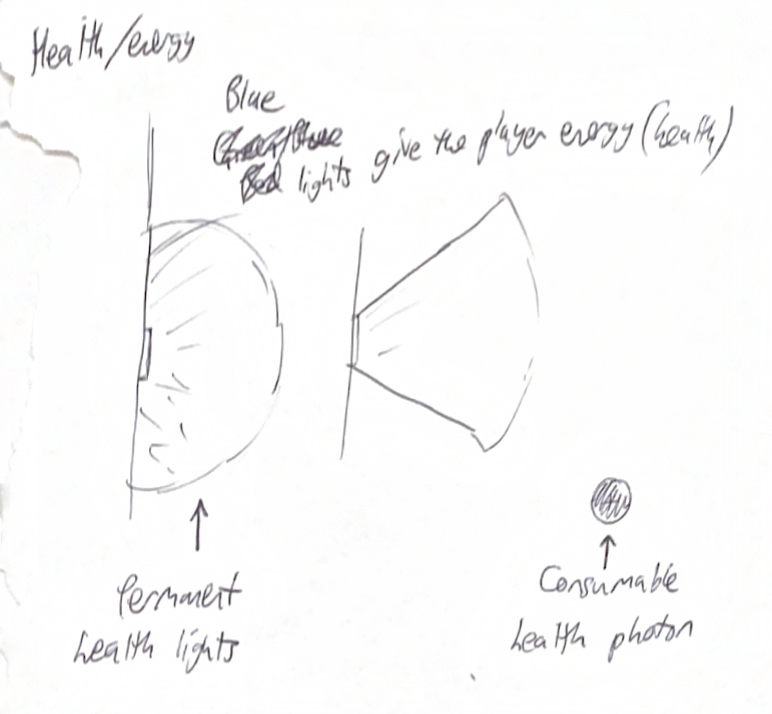 Health/energy
Blue
lights give the player energy (health)
Permanent
health lights
Consumable
health photon